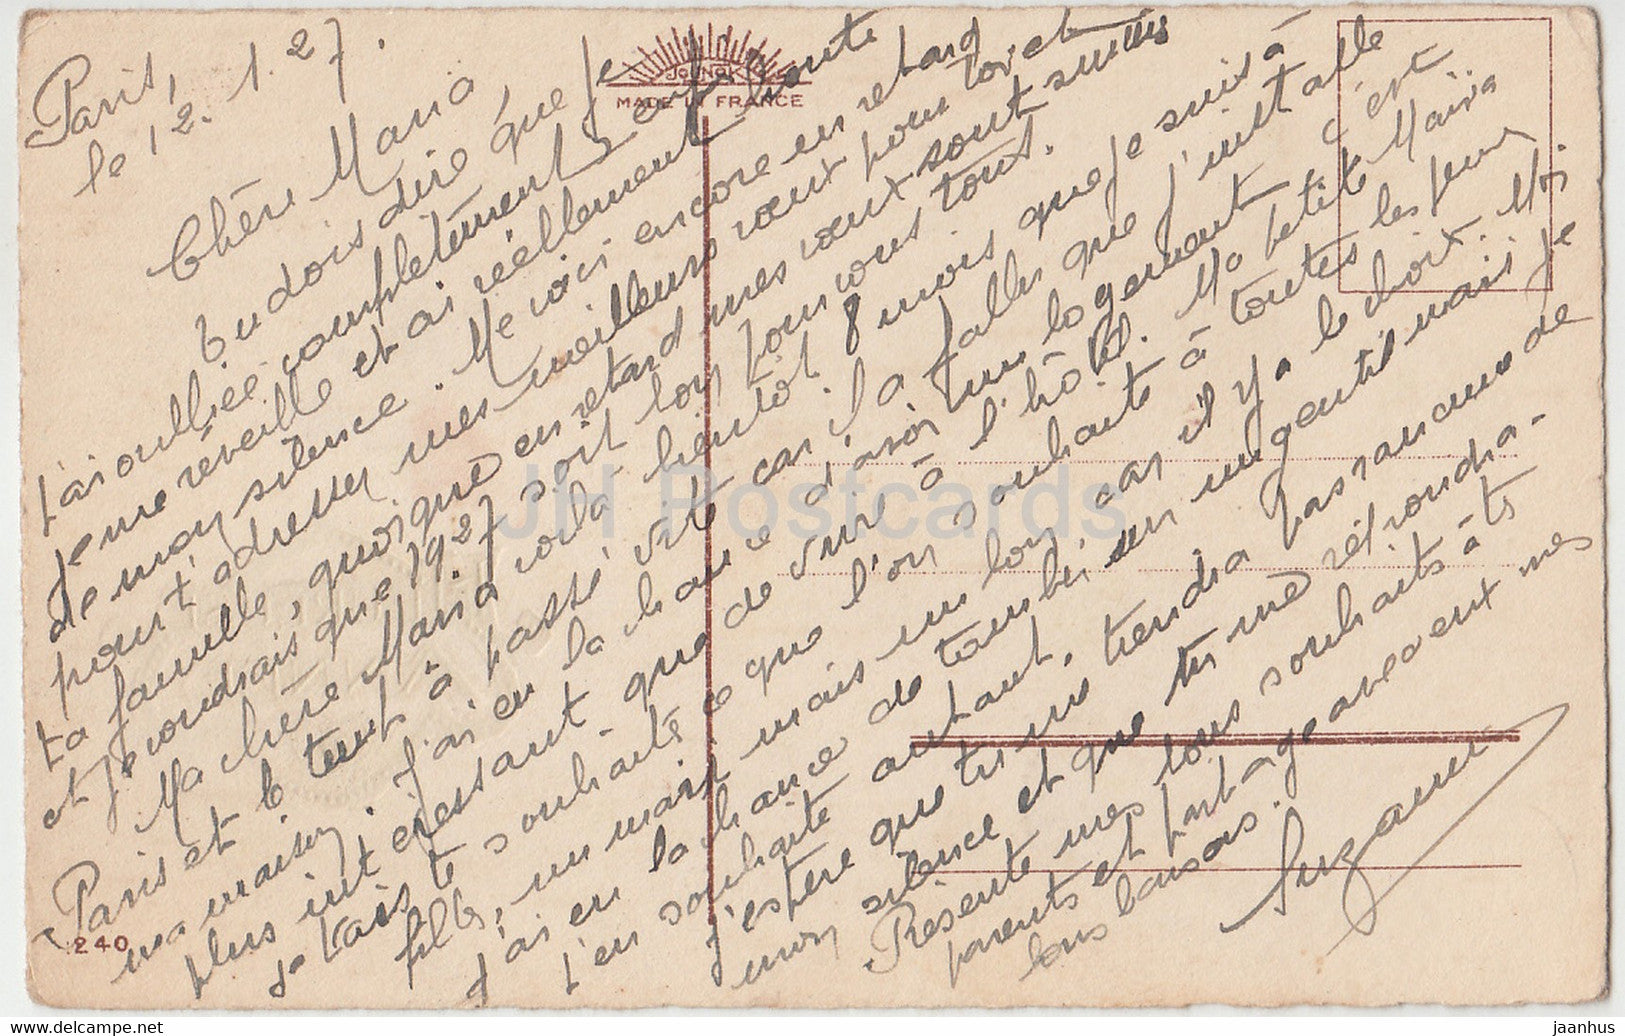 Paris,
le 12.1.27.
Chère Maria,
Tu dois dire que je
t'ai oubliée complètement enfin toute
je me réveille et ai réellement
de mon silence. Me voici encore en retard
pour t'adresser mes meilleurs vœux pour toi et
ta famille, quoique en retard mes vœux sont
et je voudrais que 1927 soit bon pour vous tous.
Ma chère Maria voilà bientôt 8 mois que je suis à
Paris et le temps à passé vite car il a fallu que j'installe
ma maison. J'ai eu la chance d'avoir un logement c'est
plus intéressant que de vivre à l'hôtel. Ma petite Maria
je vais te souhaiter ce que l'on souhaite à toutes les jeunes
filles, un mari mais un bon, car il y a le choix. Moi
j'ai eu la chance de tomber sur un gentil mais je
t'en souhaite autant.
J'espère que tu ne tiendra pas rancune de
mon silence et que tu me répondra.
Présente mes bons souhaits à tes
parents et partage avec eux mes
bons baisers.
Suzanne
JOUNOK
MADE IN FRANCE
240
JH Postcards
jaanhus @ www.delcampe.net